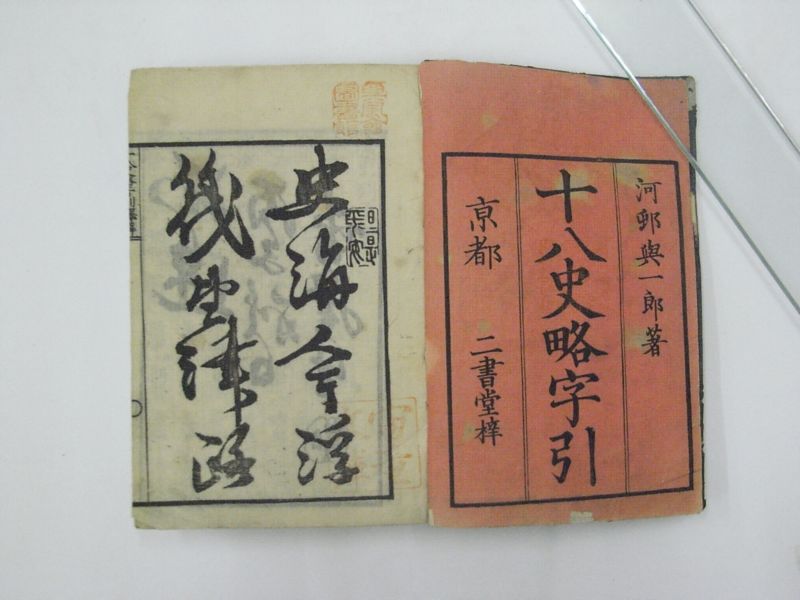 河邨與一郎著
十八史略字引
京都 二書堂梓
史海今浮
津路